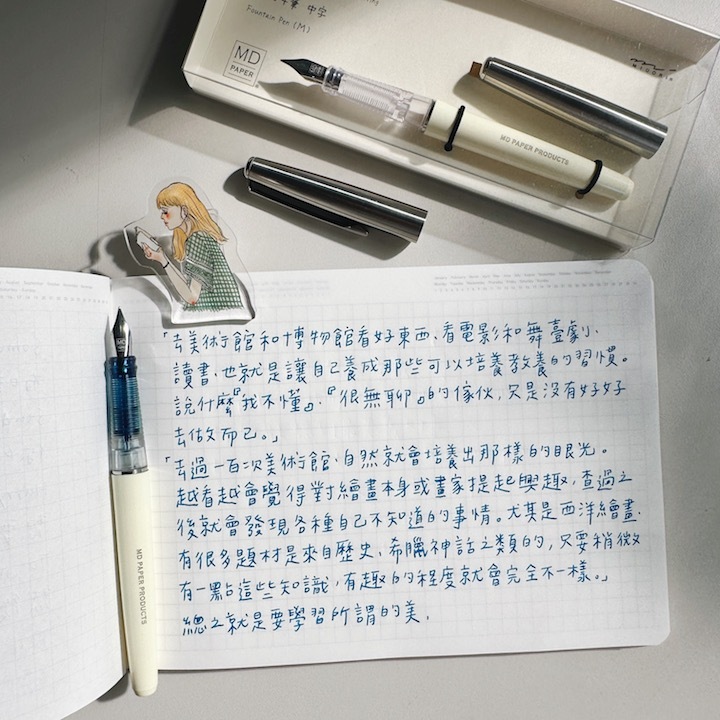 中字
Fountain Pen (M)
MD
PAPER
MIDORI
MD PAPER PRODUCTS
「去美術館和博物館看好東西、看電影和舞臺劇、
讀書、也就是讓自己養成那些可以培養教養的習慣。
說什麼『我不懂』、『很無聊』的傢伙,只是沒有好好
去做而已。」
「去過一百次美術館、自然就會培養出那樣的眼光。
越看越會覺得對繪畫本身或畫家提起興趣,查過之
後就會發現各種自己不知道的事情。尤其是西洋繪畫、
有很多題材是來自歷史、希臘神話之類的,只要稍微
有一點這些知識,有趣的程度就會完全不一樣。」
總之就是要學習所謂的美、
MD PAPER PRODUCTS